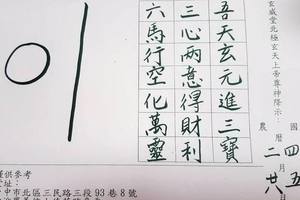 玄威堂北極玄天上帝尊神降示：
農
國四五
二廿八
吾天玄元進三寶
三心兩意得財利
六馬行空化萬靈
僅供參考
址：
中市北區三民路三段93巷8號